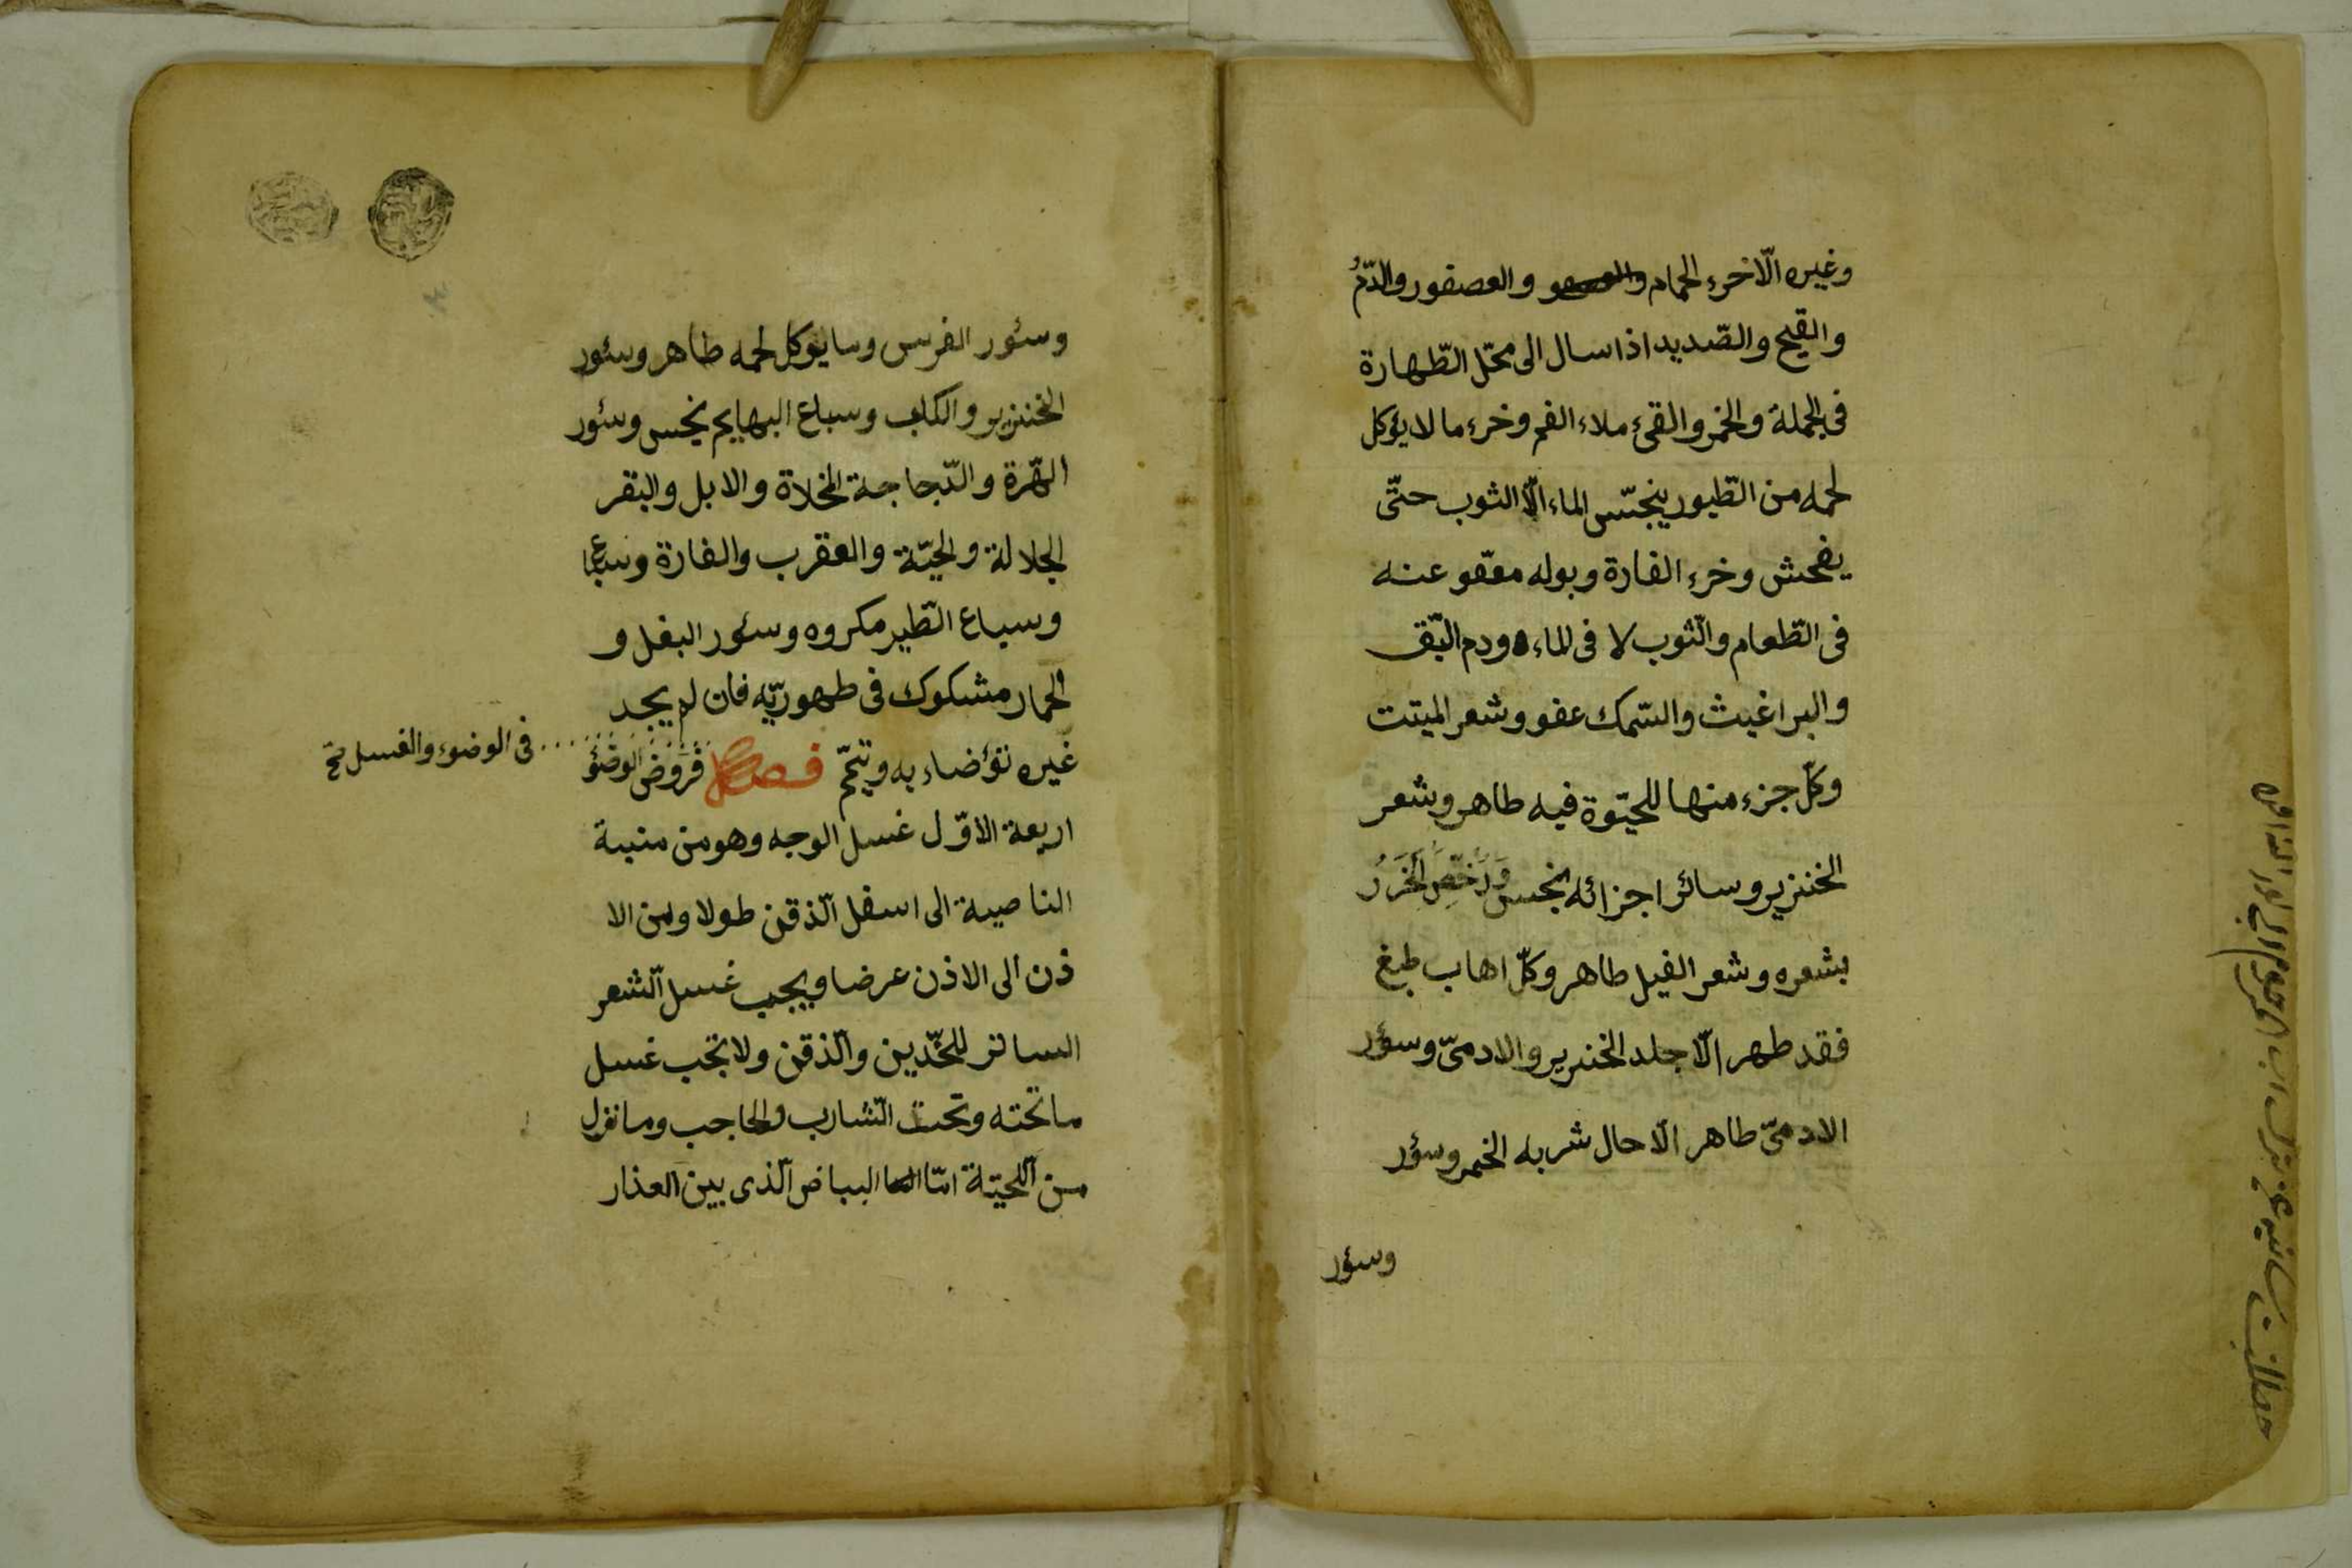 وغيره الّا خرء الحمام والعصفور والدّمُ
والقيح والصّديد اذا سال الى محّل الطّهارة
فى الجملة والخمر والقئ ملاء الفم وخرء ما لا يؤكل
لحمه من الطّيور ينجّس الماء الّا الثوب حتّى
يفحش وخرء الفارة وبوله معّفو عنه
فى الطّعام والّثوب لا فى الماء ودم البّق
والبراغيث والسّمك عفو وشعر الميتت
وكلّ جزء منها للحيٰوة فيه طاهر وشعر
الخنزير وسائر اجزائه نجس وَرُخّصَ الخَرَزُ
بشعره وشعر الفيل طاهر وكلّ اهاب طبغ
فقد طهر الّا جلد الخنزير والادمىّ وسؤر
الادمىّ طاهر الّا حال شربه الخمر وسؤر
وسؤر
وسئور الفرس وما يؤكل لحمه طاهر وسئور
الخنزير والكلب وسباع البهايم نجس وسئور
الهّرة والدّجاجة المخلاة والابل والبقر
الجلالة والحيّة والعقرب والفارة وسباع
وسباع الطّير مكروه وسئور البغل و
الحمار مشكوك فى طهوريّه فان لم يجد
غيره توّضاء به وتيمّم فصل فروض الوضُوء
فى الوضوء والغسل
اربعة الاوّل غسل الوجه وهو من منبة
الناصية الى اسفل الّذقن طولا ومن الا
ذن الى الاذن عرضا ويجب غسل الّشعر
الساتر للخّدين والّذقن ولا تجب غسل
ما تحته وتحت الّشارب والحاجب وما نزل
من الّلحيّة امّا البياض الّذى بين العذار